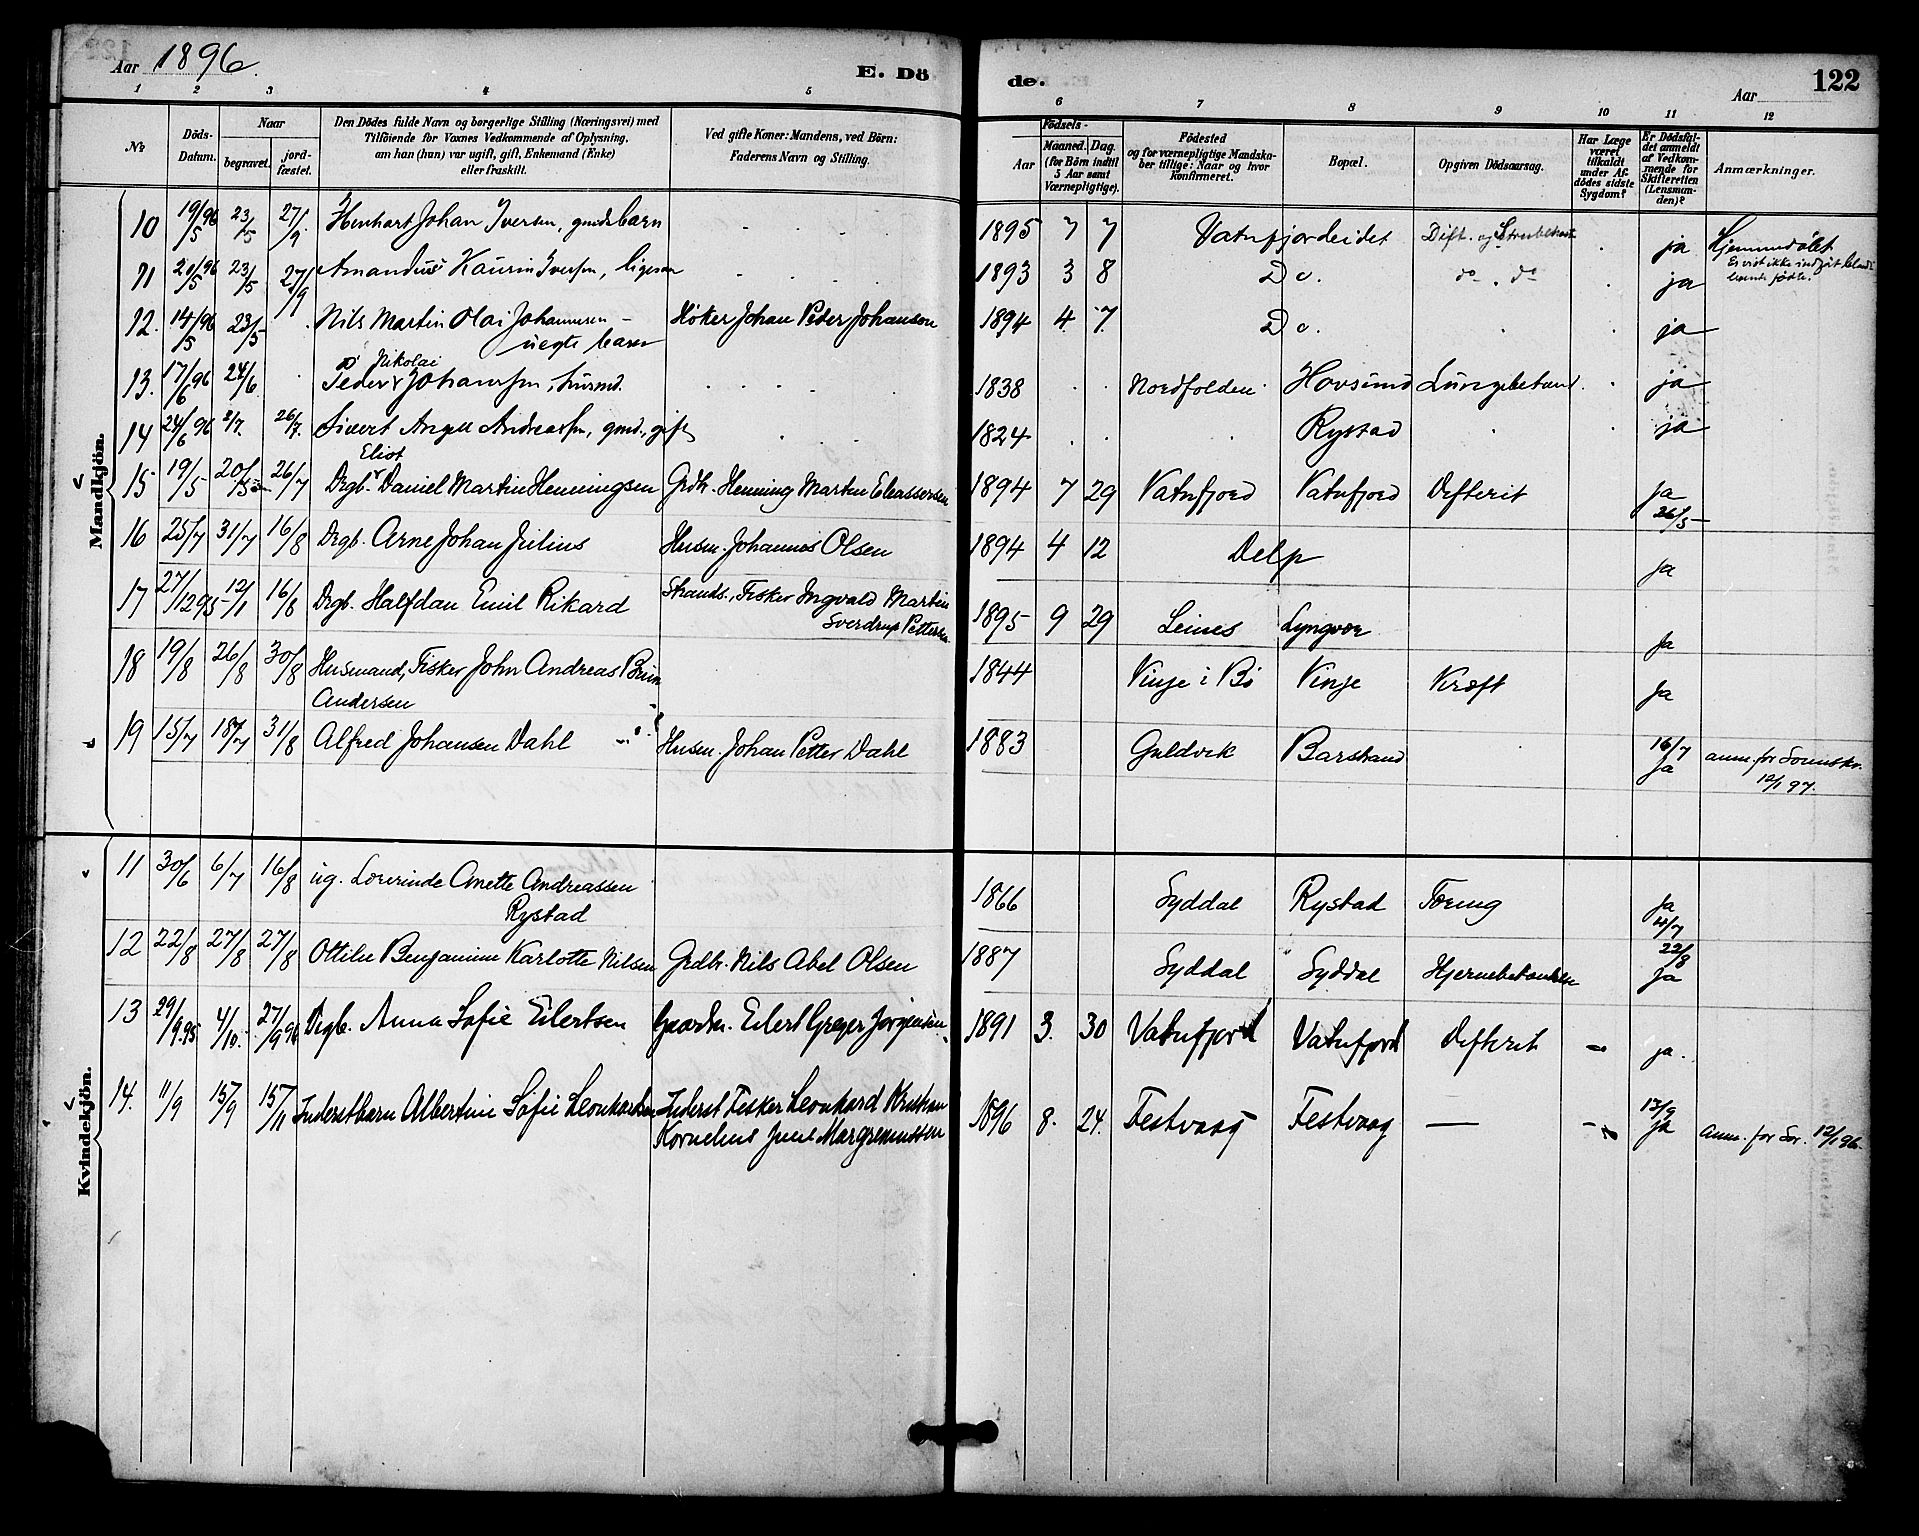 Aar 1896. E. Dö
de. Aar 122
1 2 3 4 5 6 7 8 9 10 11 12
No
Döds-Datum.
Naar
begravet.
jord-fæstet.
Den Dödes fulde Navn og borgerlige Stilling (Næringsvei) med
Tilföiende for Voxnes Vedkommende af Oplysning,
om han (hun) var ugift, gift, Enkemand (Enke)
eller fraskilt.
Ved gifte Koner: Mandens, ved Börn:
Faderens Navn og Stilling.
Födsels-
Aar Maaned. Dag.
(for Börn indtil
5 Aar samt
Værnepligtige).
Födested
og for værnepligtige Mandska-
ber tillige: Naar og hvor
Konfirmeret.
Bopæl.
Opgiven Dödsaarsag.
Har Læge
været
tilkaldt
under Af-
dödes sidste
Sygdom?
Er Dödsfal-
det anmeldt
af Vedkom-
mende for
Skifteretten
(Lensman-
den)?
Anmærkninger.
Mandkjön.
10 19/5 96 23/5 27/9 Johan Iversen, gmds barn 1895 7 7 Vatnfjordeidet Dift. og ja Hjemmedøbt
11 20/5 96 23/5 27/9 Amandus Kaurin Iversen, ligesaa 1893 3 8 Do. do. do ja
12. 14/5 96 23/5 Nils Martin Olai Johannesen - Høker Johan Peder Johanson 1894 4 7 Do. ja
uegte barn
Nikolai
13. 17/6 96 24/6 Peder Johansen, husmd. 1838 Nordfolden Hovsund Lungebetænd. ja
14 24/6 96 2/7. 26/7. Sivert Angell Andreassen, gmd., gift 1824 Rystad ja
Eliot
15 19/5 20/5 26/7 Drgb. Daniel Martin Henningsen Grdbr. Henning Martin Eleassersen 1894 7 29 Vatnfjord Vatnfjord Defterit ja
26/5
16 25/7 31/7 16/8 Drgb. Arne Johan Julius Husm. Johannes Olsen 1894 4 12 Delp ja
17 27/12 95 12/1 16/8 Drgb. Halfdan Emil Rikard Strands., Fisker Ingvald Martin
Sverdrup Pettersen 1895 9 29 Leines Lyngvær ja
18 19/8 26/8 30/8 Husmand, Fisker John Andreas
Andersen 1844 Vinje i Bø Vinje Kræft ja
19 15/7 18/7 31/8 Alfred Johansen Dahl Husm. Johan Petter Dahl 1883 Guldvik Barstrand 16/7
ja anm. for Sorenskr.
12/1 97.
Kvindekjön.
11 30/6 6/7 16/8 ug. Lovrinde Anette Andreassen
Rystad 1866 Syddal Rystad Tæring ja
4/7
12 22/8 27/8 27/8 Ottilie Benjamine Karlotte Nilsen Grdbr. Nils Abel Olsen 1887 Syddal Syddal Hjernebetændelsen 22/8
ja
13 29/9.95 4/10. 27/9 96 Drgb. Anna Sofie Eilertsen Gaardm. Eilert Greger Jørgensen 1891 3. 30 Vatnfjord Vatnfjord Defterit - ja.
14. 11/9 15/9 15/11 Inderstbarn Albertine Sofie Leonhardsen Inderst Fisker Leonhard Kristian
Kornelius Juul Margremussen 1896 8. 24. Festvaag Festvaag — - 13/9
ja anm. for Sor. 12/1 96.